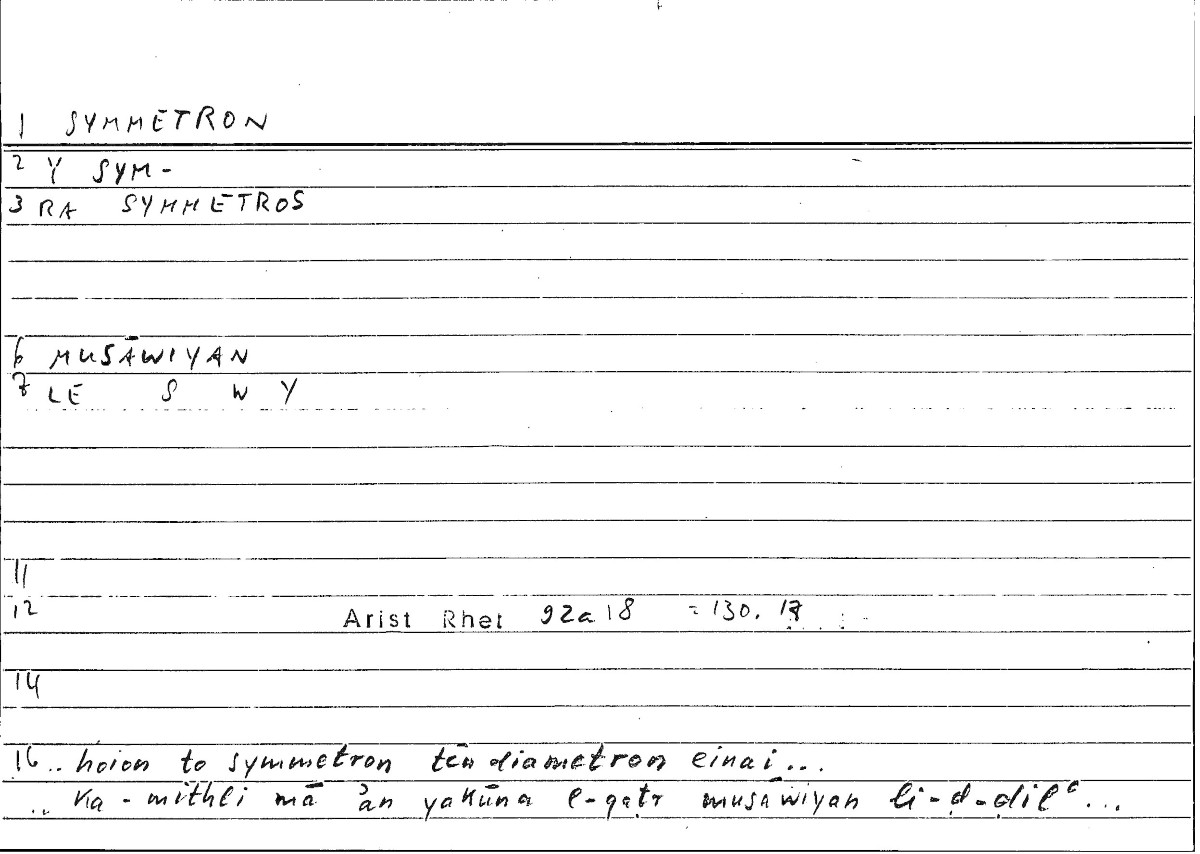 1 SYMMETRON
2 Y SYM-
3 RA SYMMETROS
6 MUSĀWIYAN
7 LE S W Y
11
12 Arist Rhet 92a18 = 130, 17
14
16 .. hoion to symmetron tēn diametron einai...
.. Ka-mithli mā ʾan yakūna l-qaṭr musāwiyan li-ḍ-ḍilʿ...